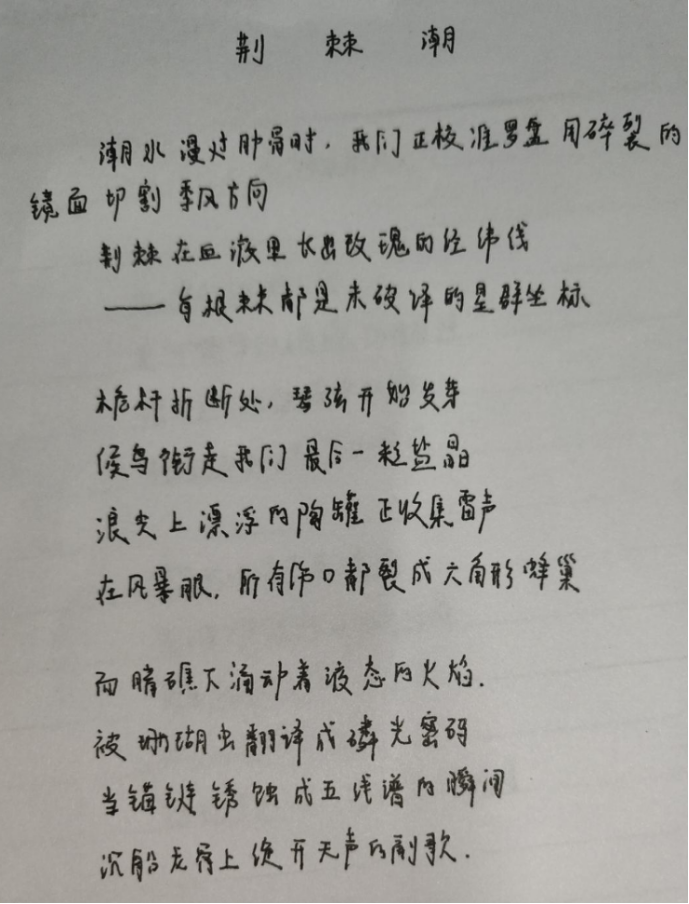 荆 棘 潮
潮水漫过肋骨时，我们正校准罗盘用碎裂的
镜面切割季风方向
荆棘在血液里长出玫瑰的经纬线
——每根棘都是未破译的星群坐标
桅杆折断处，琴弦开始发芽
候鸟衔走我们最后一粒盐晶
浪尖上漂浮的陶罐正收集雷声
在风暴眼，所有伤口都裂成六角形蜂巢
而暗礁下涌动着液态的火焰.
被珊瑚虫翻译成磷光密码
当锚链锈蚀成五线谱的瞬间
沉船龙骨上绽开无声的副歌.